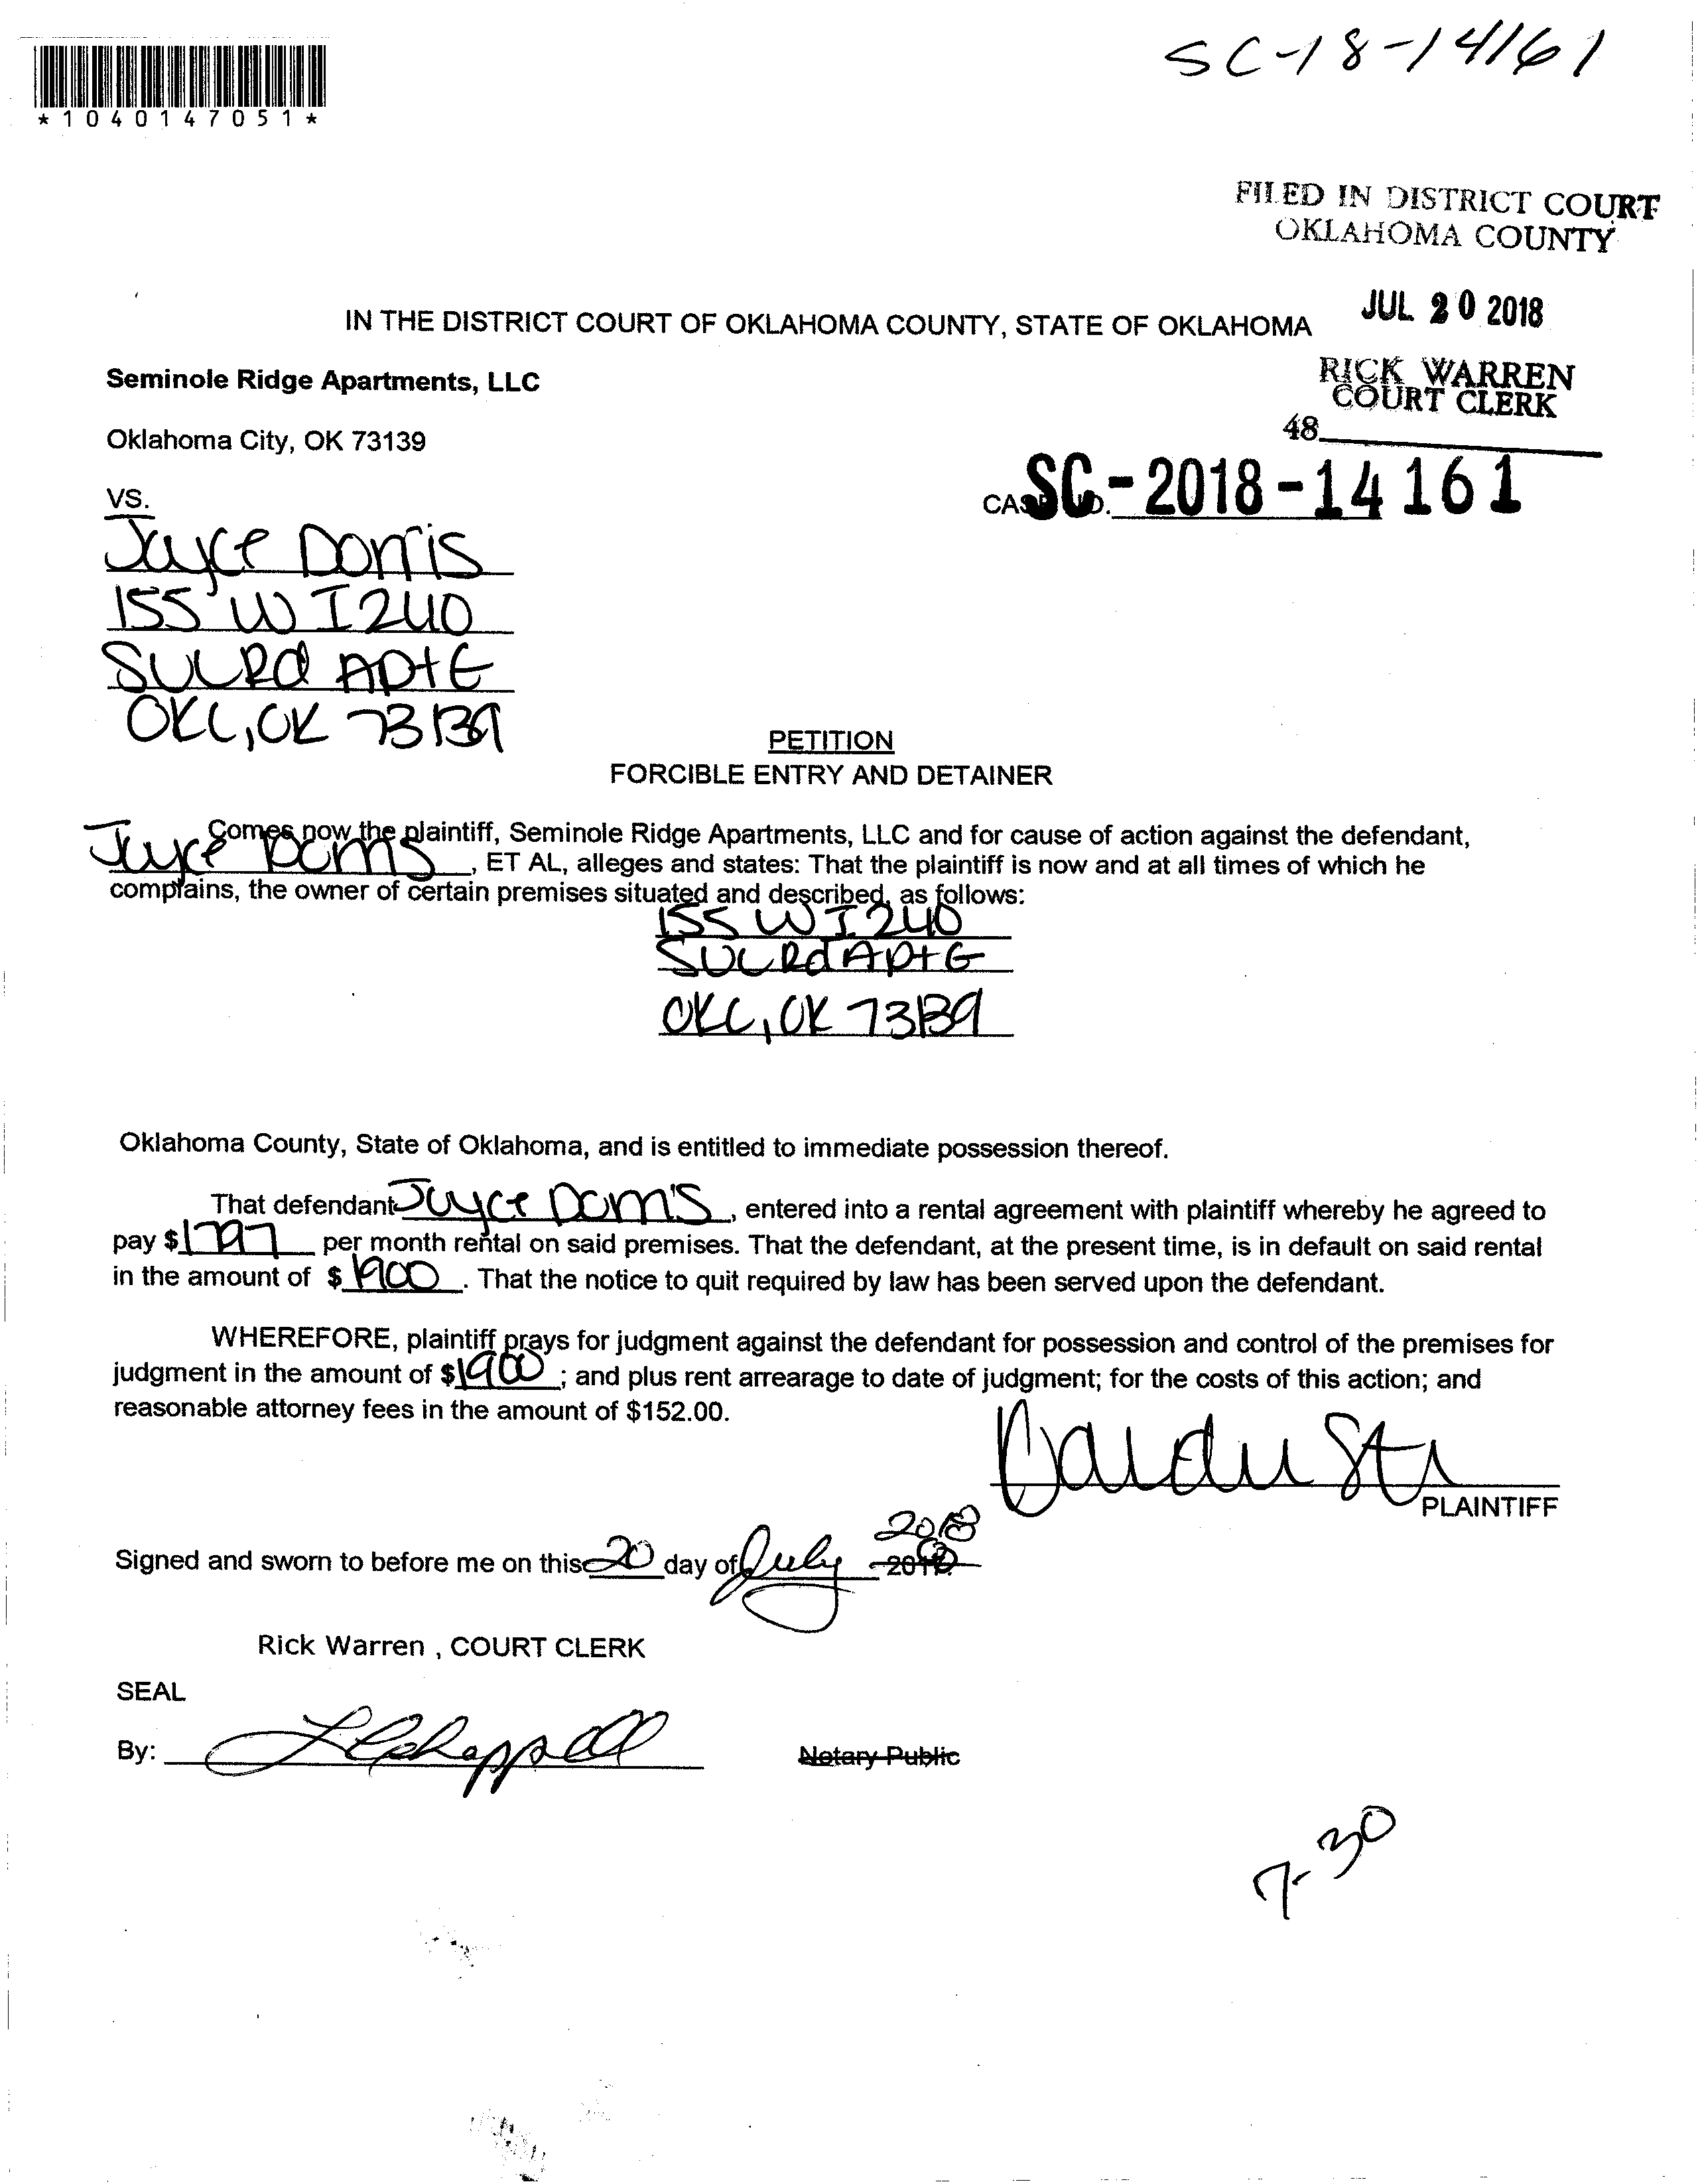 SC-18-14161
*1040147051*
FILED IN DISTRICT COURT
OKLAHOMA COUNTY
JUL 20 2018
IN THE DISTRICT COURT OF OKLAHOMA COUNTY, STATE OF OKLAHOMA
RICK WARREN
COURT CLERK
Seminole Ridge Apartments, LLC
48
Oklahoma City, OK 73139
SC-2018-14161
VS.
Joyce Dorris
155 W I240
Rd Apt G
OKC, OK 73139
PETITION
FORCIBLE ENTRY AND DETAINER
Comes now the plaintiff, Seminole Ridge Apartments, LLC and for cause of action against the defendant,
Joyce Dorris, ET AL, alleges and states: That the plaintiff is now and at all times of which he
complains, the owner of certain premises situated and described, as follows:
155 W I240
Rd Apt G
OKC, OK 73139
Oklahoma County, State of Oklahoma, and is entitled to immediate possession thereof.
That defendant Joyce Dorris, entered into a rental agreement with plaintiff whereby he agreed to
pay $1797 per month rental on said premises. That the defendant, at the present time, is in default on said rental
in the amount of $1900. That the notice to quit required by law has been served upon the defendant.
WHEREFORE, plaintiff prays for judgment against the defendant for possession and control of the premises for
judgment in the amount of $1900; and plus rent arrearage to date of judgment; for the costs of this action; and
reasonable attorney fees in the amount of $152.00.
PLAINTIFF
Signed and sworn to before me on this 20 day of July 2018
Rick Warren , COURT CLERK
SEAL
By:
Notary Public
7-30